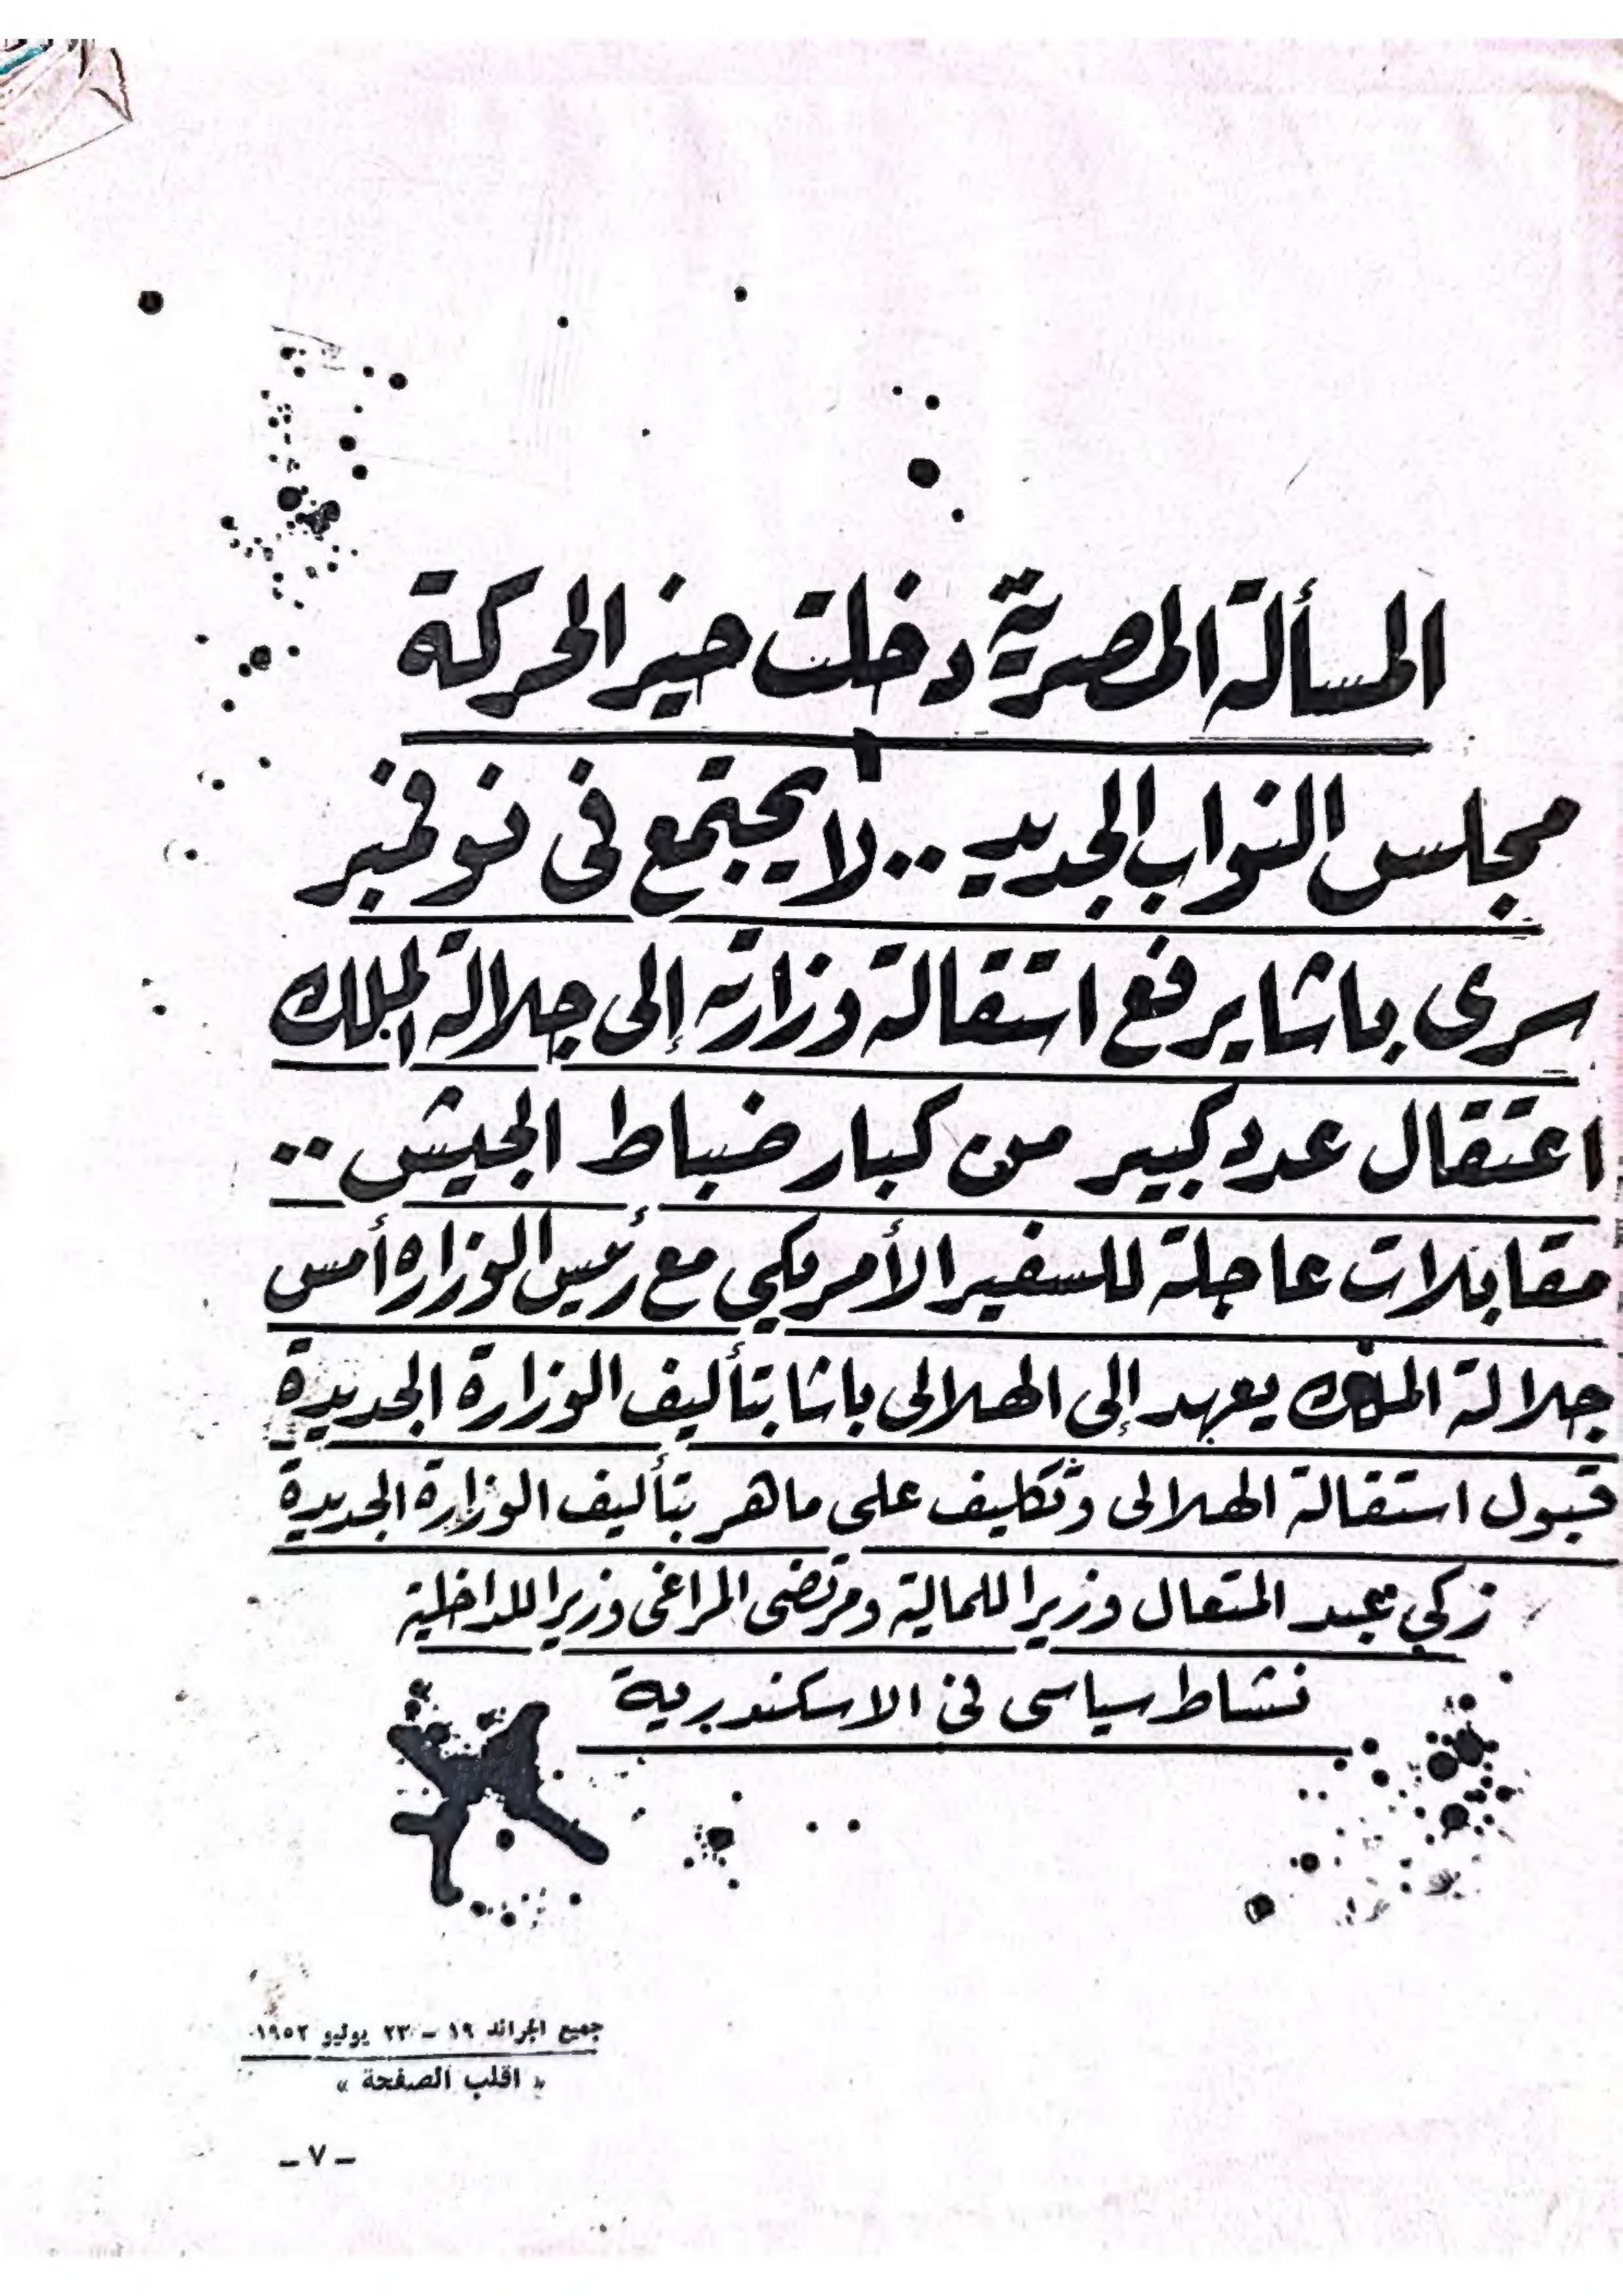 المسألة المصرية دخلت حيز الحركة
مجلس النواب الجديد .. لا يجتمع فى نوفمبر
سرى باشا يرفع استقالة وزارته إلى جلالة الملك
اعتقال عدد كبير من كبار ضباط الجيش ..
مقابلات عاجلة للسفير الأمريكي مع رئيس الوزاره أمس
جلالة الملك يعهد إلى الهلالى باشا بتأليف الوزارة الجديدة
قبول استقالة الهلالى وتكليف على ماهر بتأليف الوزارة الجديدة
زكي عبد المتعال وزيرا للمالية ومرتضى المراغى وزيرا للداخلية
نشاط سياسى فى الاسكندرية
جميع الجرائد ١٩ - ٢٣ يوليو ١٩٥٢
« اقلب الصفحة »
- ٧ -